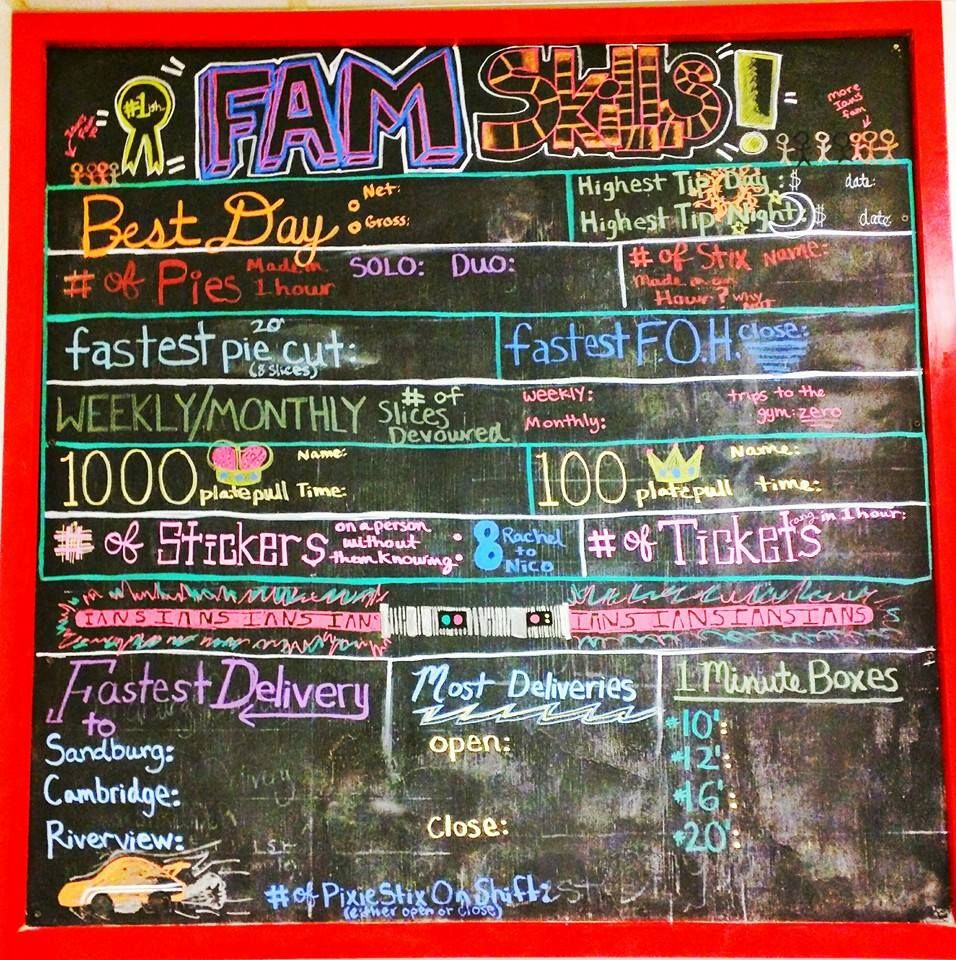 #1ish
FAM Skills!
Ians Fam
more Ians fam
Best Day
Net:
Gross:
Highest Tip Day: $ date:
Highest Tip Night: $ date:
# of Pies Made in 1 hour SOLO: Duo:
# of Stix Name:
Made in an Hour? why not
fastest 20" pie cut:
(8 slices)
fastest F.O.H. close:
WEEKLY/MONTHLY # of Slices Devoured
weekly:
Monthly:
trips to the gym: zero
1000 plate pull Name:
Time:
100 plate pull Name:
time:
# of Stickers on a person without them knowing: 8 Rachel to Nico
# of Tickets rang in 1 hour:
IANS IANS IANS IAN
IANS IANS IANS IANS
Fastest Delivery to
Sandburg:
Cambridge:
Riverview:
Most Deliveries
open:
Close:
1 Minute Boxes
*10":
*12":
*16":
*20":
# of Pixie Stix On Shift:
(either open or close)